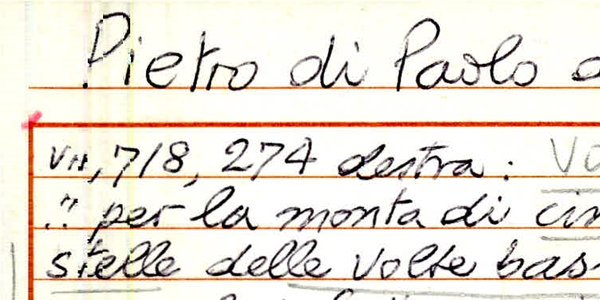 Pietro di Paolo
VII, 7/8, 274 destra:
." per la monta di
stelle delle volte